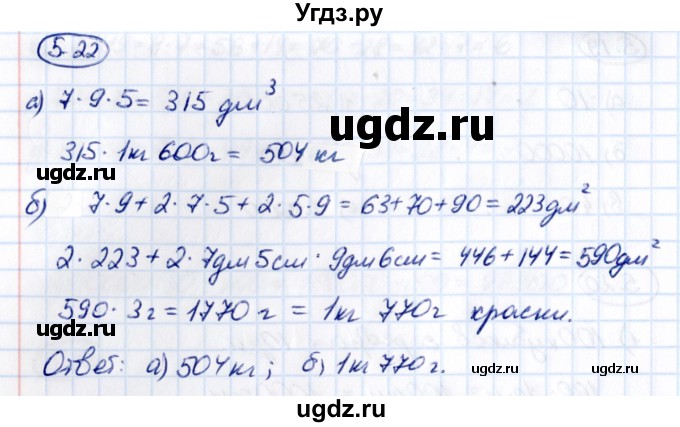 Угдз.ру
5.22
а) 7·9·5 = 315 дм³
ugdz.ru
ugdz.ru
315 · 1кг 600г = 504 кг
ugdz.ru
б) 7·9 + 2·7·5 + 2·5·9 = 63+70+90 = 223дм²
2·223 + 2·7дм 5см · 9дм 6см = 446+144 = 590дм²
ugdz.ru
ugdz.ru
590 · 3г = 1770 г = 1кг 770г краски.
ugdz.ru
Ответ: а) 504 кг; б) 1кг 770г.
ugdz.ru
ugdz.ru